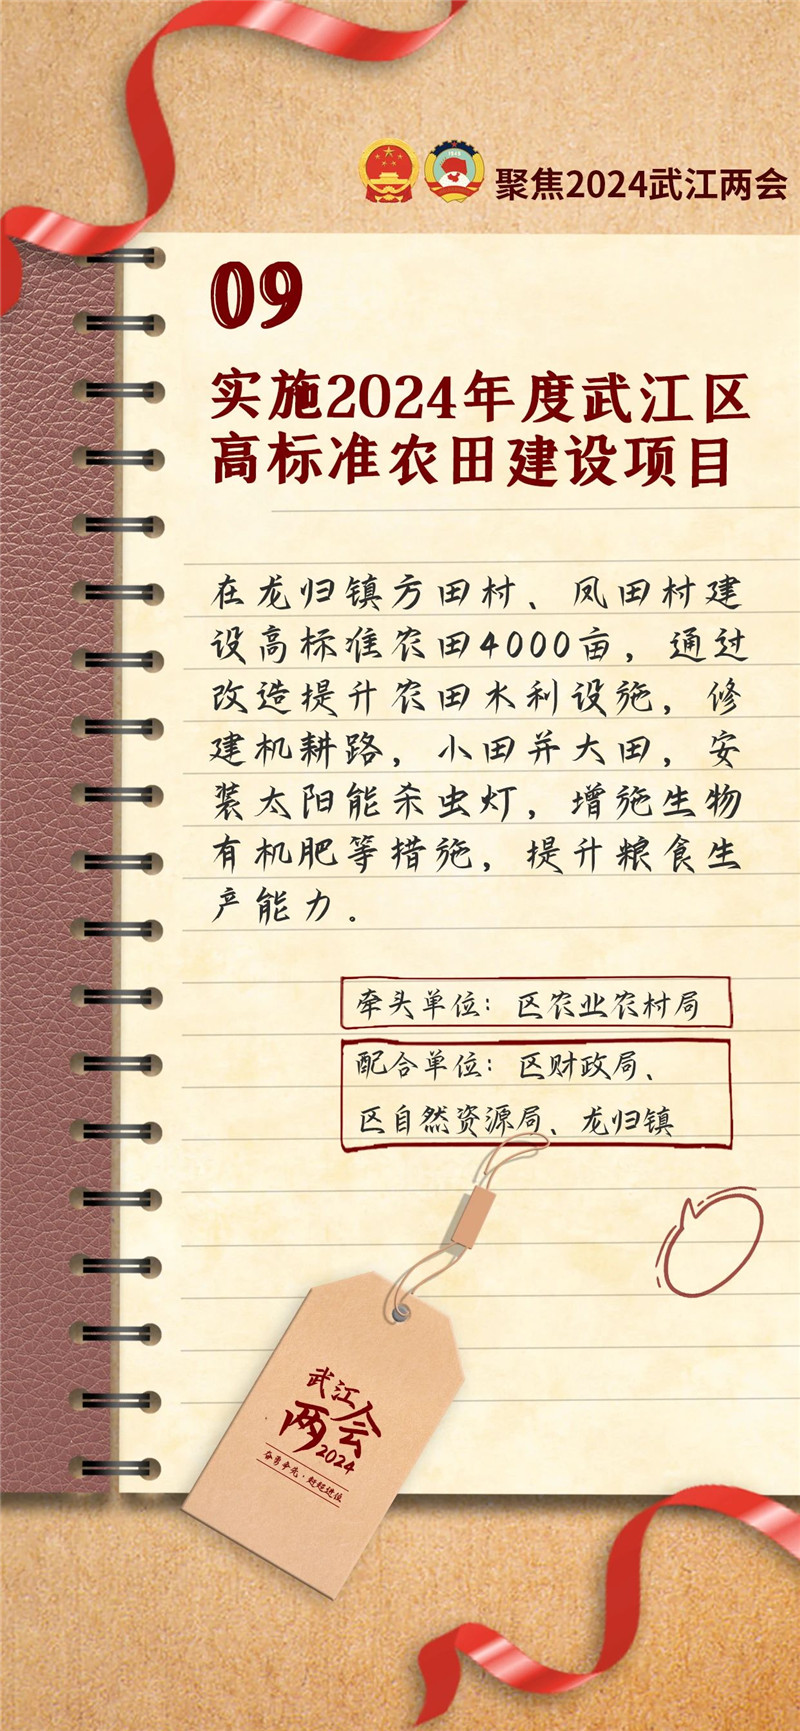 聚焦2024武江两会
09
实施2024年度武江区
高标准农田建设项目
在龙归镇方田村、凤田村建
设高标准农田4000亩，通过
改造提升农田水利设施，修
建机耕路，小田并大田，安
装太阳能杀虫灯，增施生物
有机肥等措施，提升粮食生
产能力。
牵头单位：区农业农村局
配合单位：区财政局、
区自然资源局、龙归镇
武江
两会
2024
奋勇争先·赶超进位